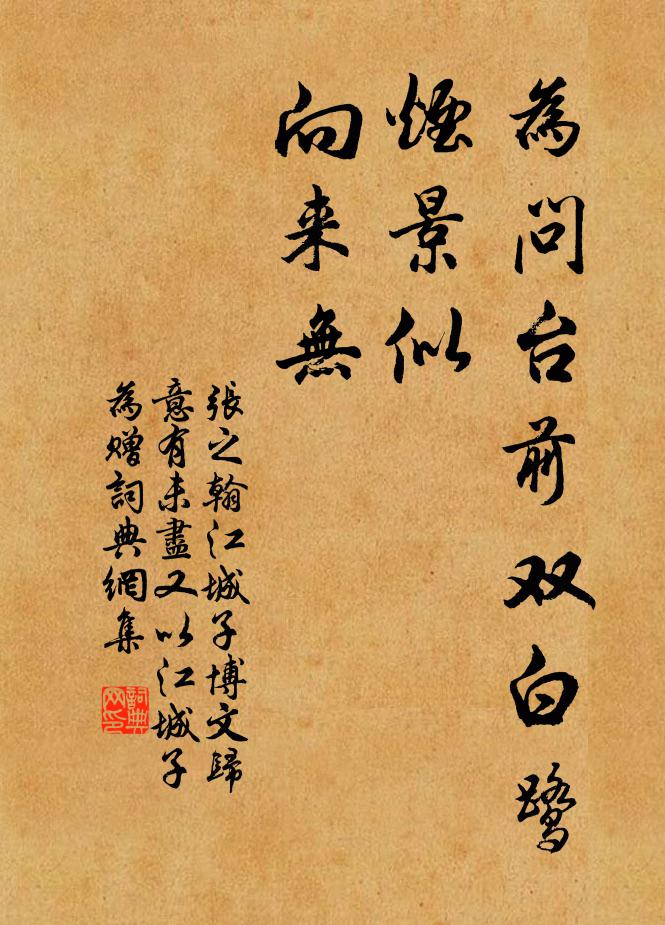 為問台前双白鹭
煙景似
向来無
張之翰江城子博文歸
意有未盡又以江城子
為赠詞典網集
詞典网印